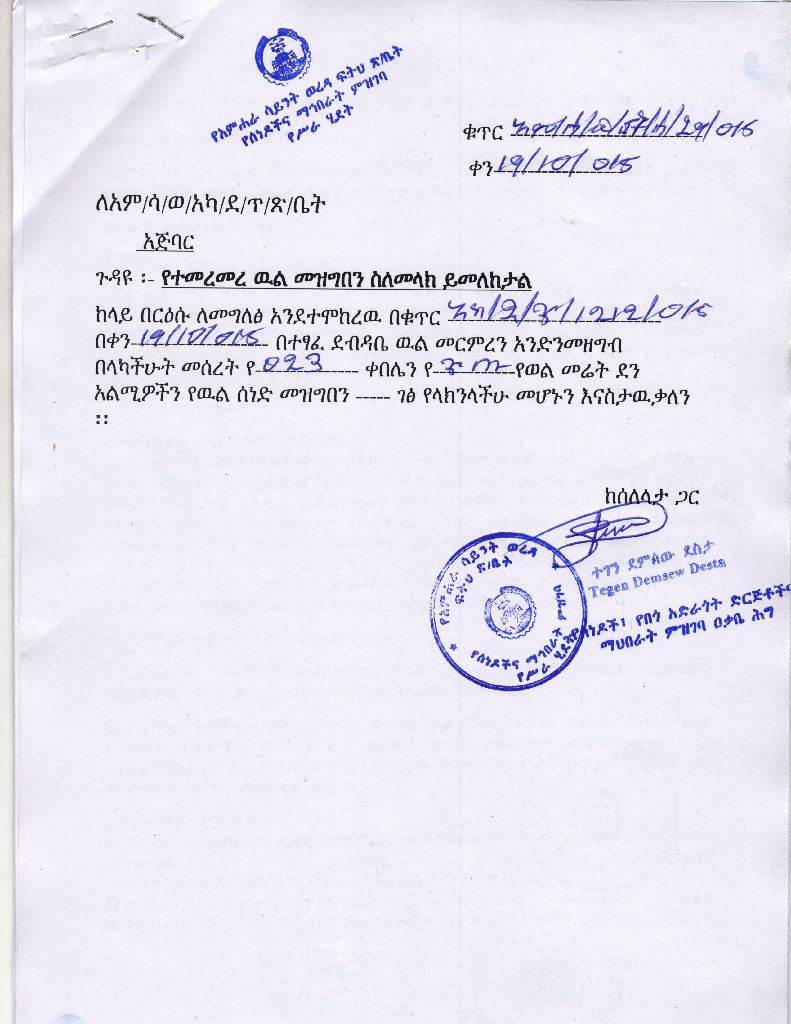 የአምሐራ ሳይንት ወረዳ ፍትህ ጽ/ቤት
የሰነዶችና ማኅበራት ምዝገባ
የሥራ ሂደት
ቁጥር 015
ቀን 19/10/015
ለአም/ሳ/ወ/አካ/ደ/ጥ/ጽ/ቤት
አጅባር
ጉዳዩ ፡- የተመረመረ ዉል መዝግበን ስለመላክ ይመለከታል
ከላይ በርዕሱ ለመግለፅ እንደተሞከረዉ በቁጥር 1212/015
በቀን 19/10/015 በተፃፈ ደብዳቤ ዉል መርምረን እንድንመዘግብ
በላካችሁት መሰረት የ 023 ቀበሌን የ የወል መሬት ደን
አልሚዎችን የዉል ሰነድ መዝግበን ----- ገፅ የላክንላችሁ መሆኑን እናስታዉቃለን
፡፡
ከሰለላታ ጋር
ተገን ደምሰው ደስታ
Tegen Demsew Desta
የሰነዶች፣ የበጎ አድራጎት ድርጅቶችና
ማህበራት ምዝገባ ዐቃቤ ሕግ
የአምሐራ ሳይንት ወረዳ
ፍትህ ጽ/ቤት
የሰነዶችና ማኅበራት
የሥራ ሂደት